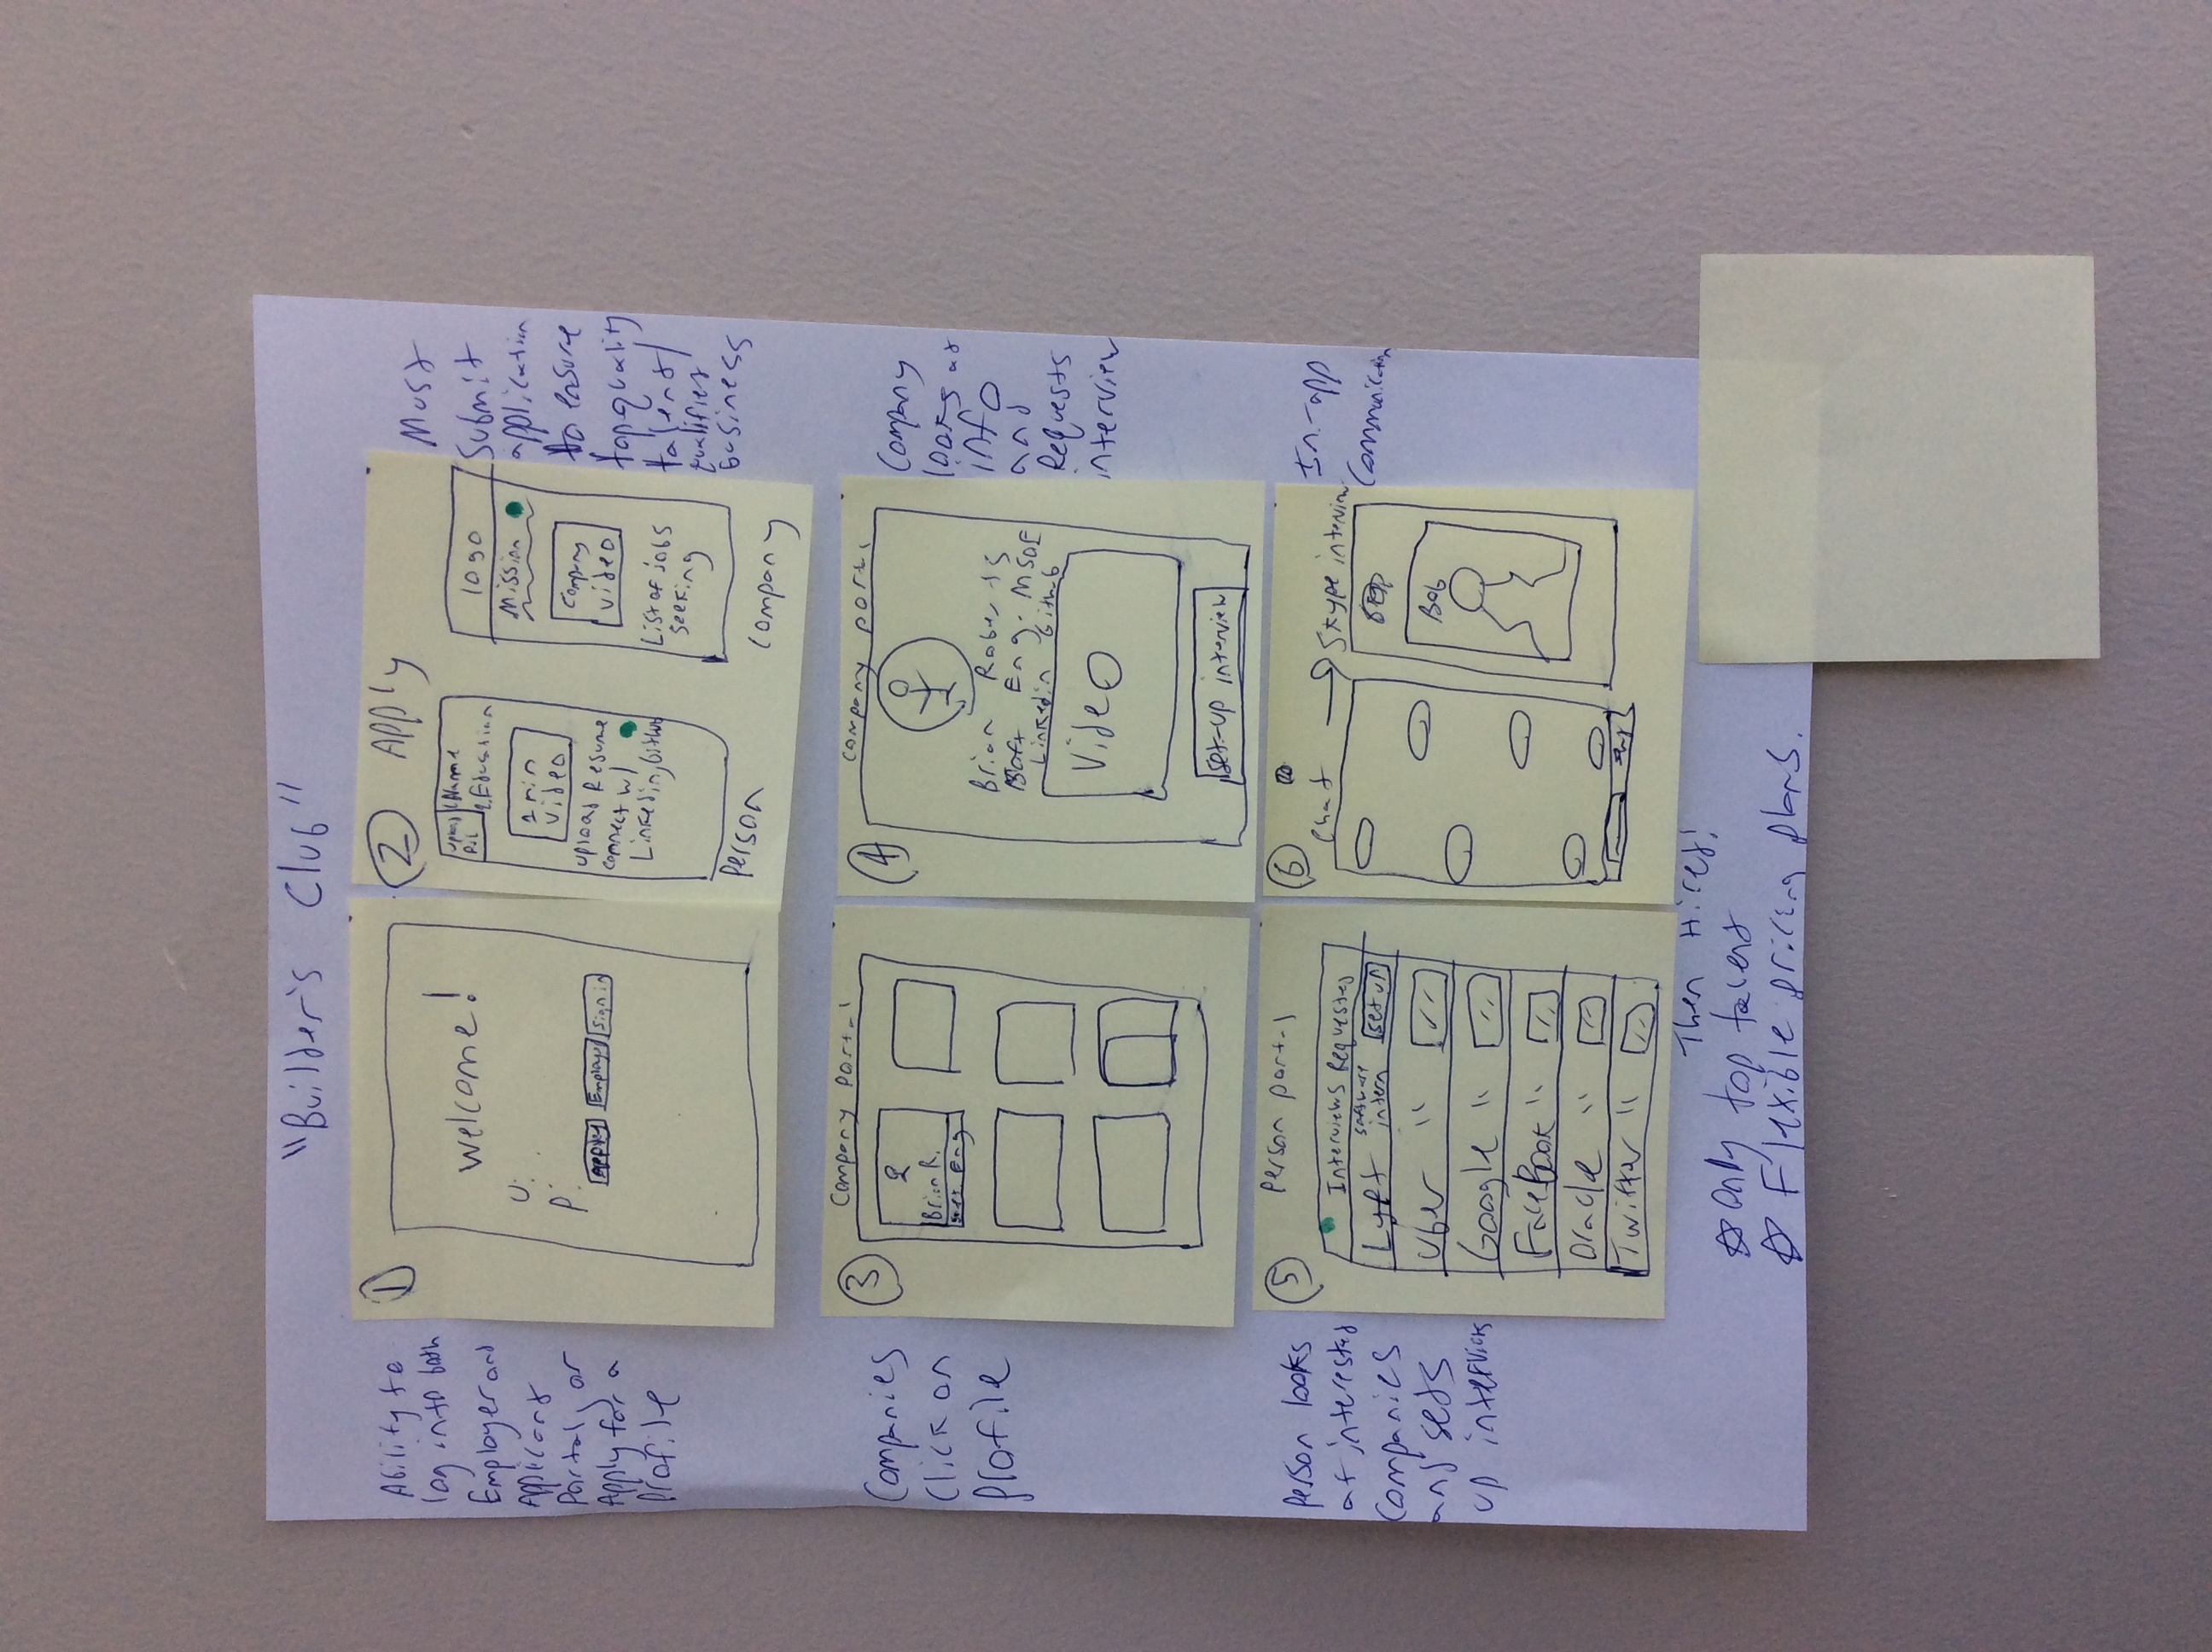 "Builder's Club"
Ability to
log into both
Employer and
Applicant
Portal, or
Apply for a
Profile
1
Welcome!
U:
P:
Apply Employer Sign in
2 Apply
Upload
Pic
1. Name
2. Education
1 min
Video
Upload Resume
Connect w/
Linkedin, Github
Person
logo
Mission
Company
video
List of jobs
seeking
Company
Must
Submit
application
to ensure
top quality
talent/
qualified
business
Companies
Click on
Profile
3
Company portal
Brian R.
Soft. Eng
4
Company portal
Brian Roberts
Soft Eng. MSOE
Linkedin Github
Video
Set-up interview
Company
looks at
info
and
Requests
interview
Person looks
at interested
Companies
and sets
up interviews
5
Person portal
Interviews Requested
Lyft software intern set up
Uber " "
Google " "
FaceBook " "
Oracle " "
Twitter " "
6
Chat → Skype interview
Bob
In-app
Communication
Then Hired!
☆ Only top talent
☆ Flexible pricing plans.